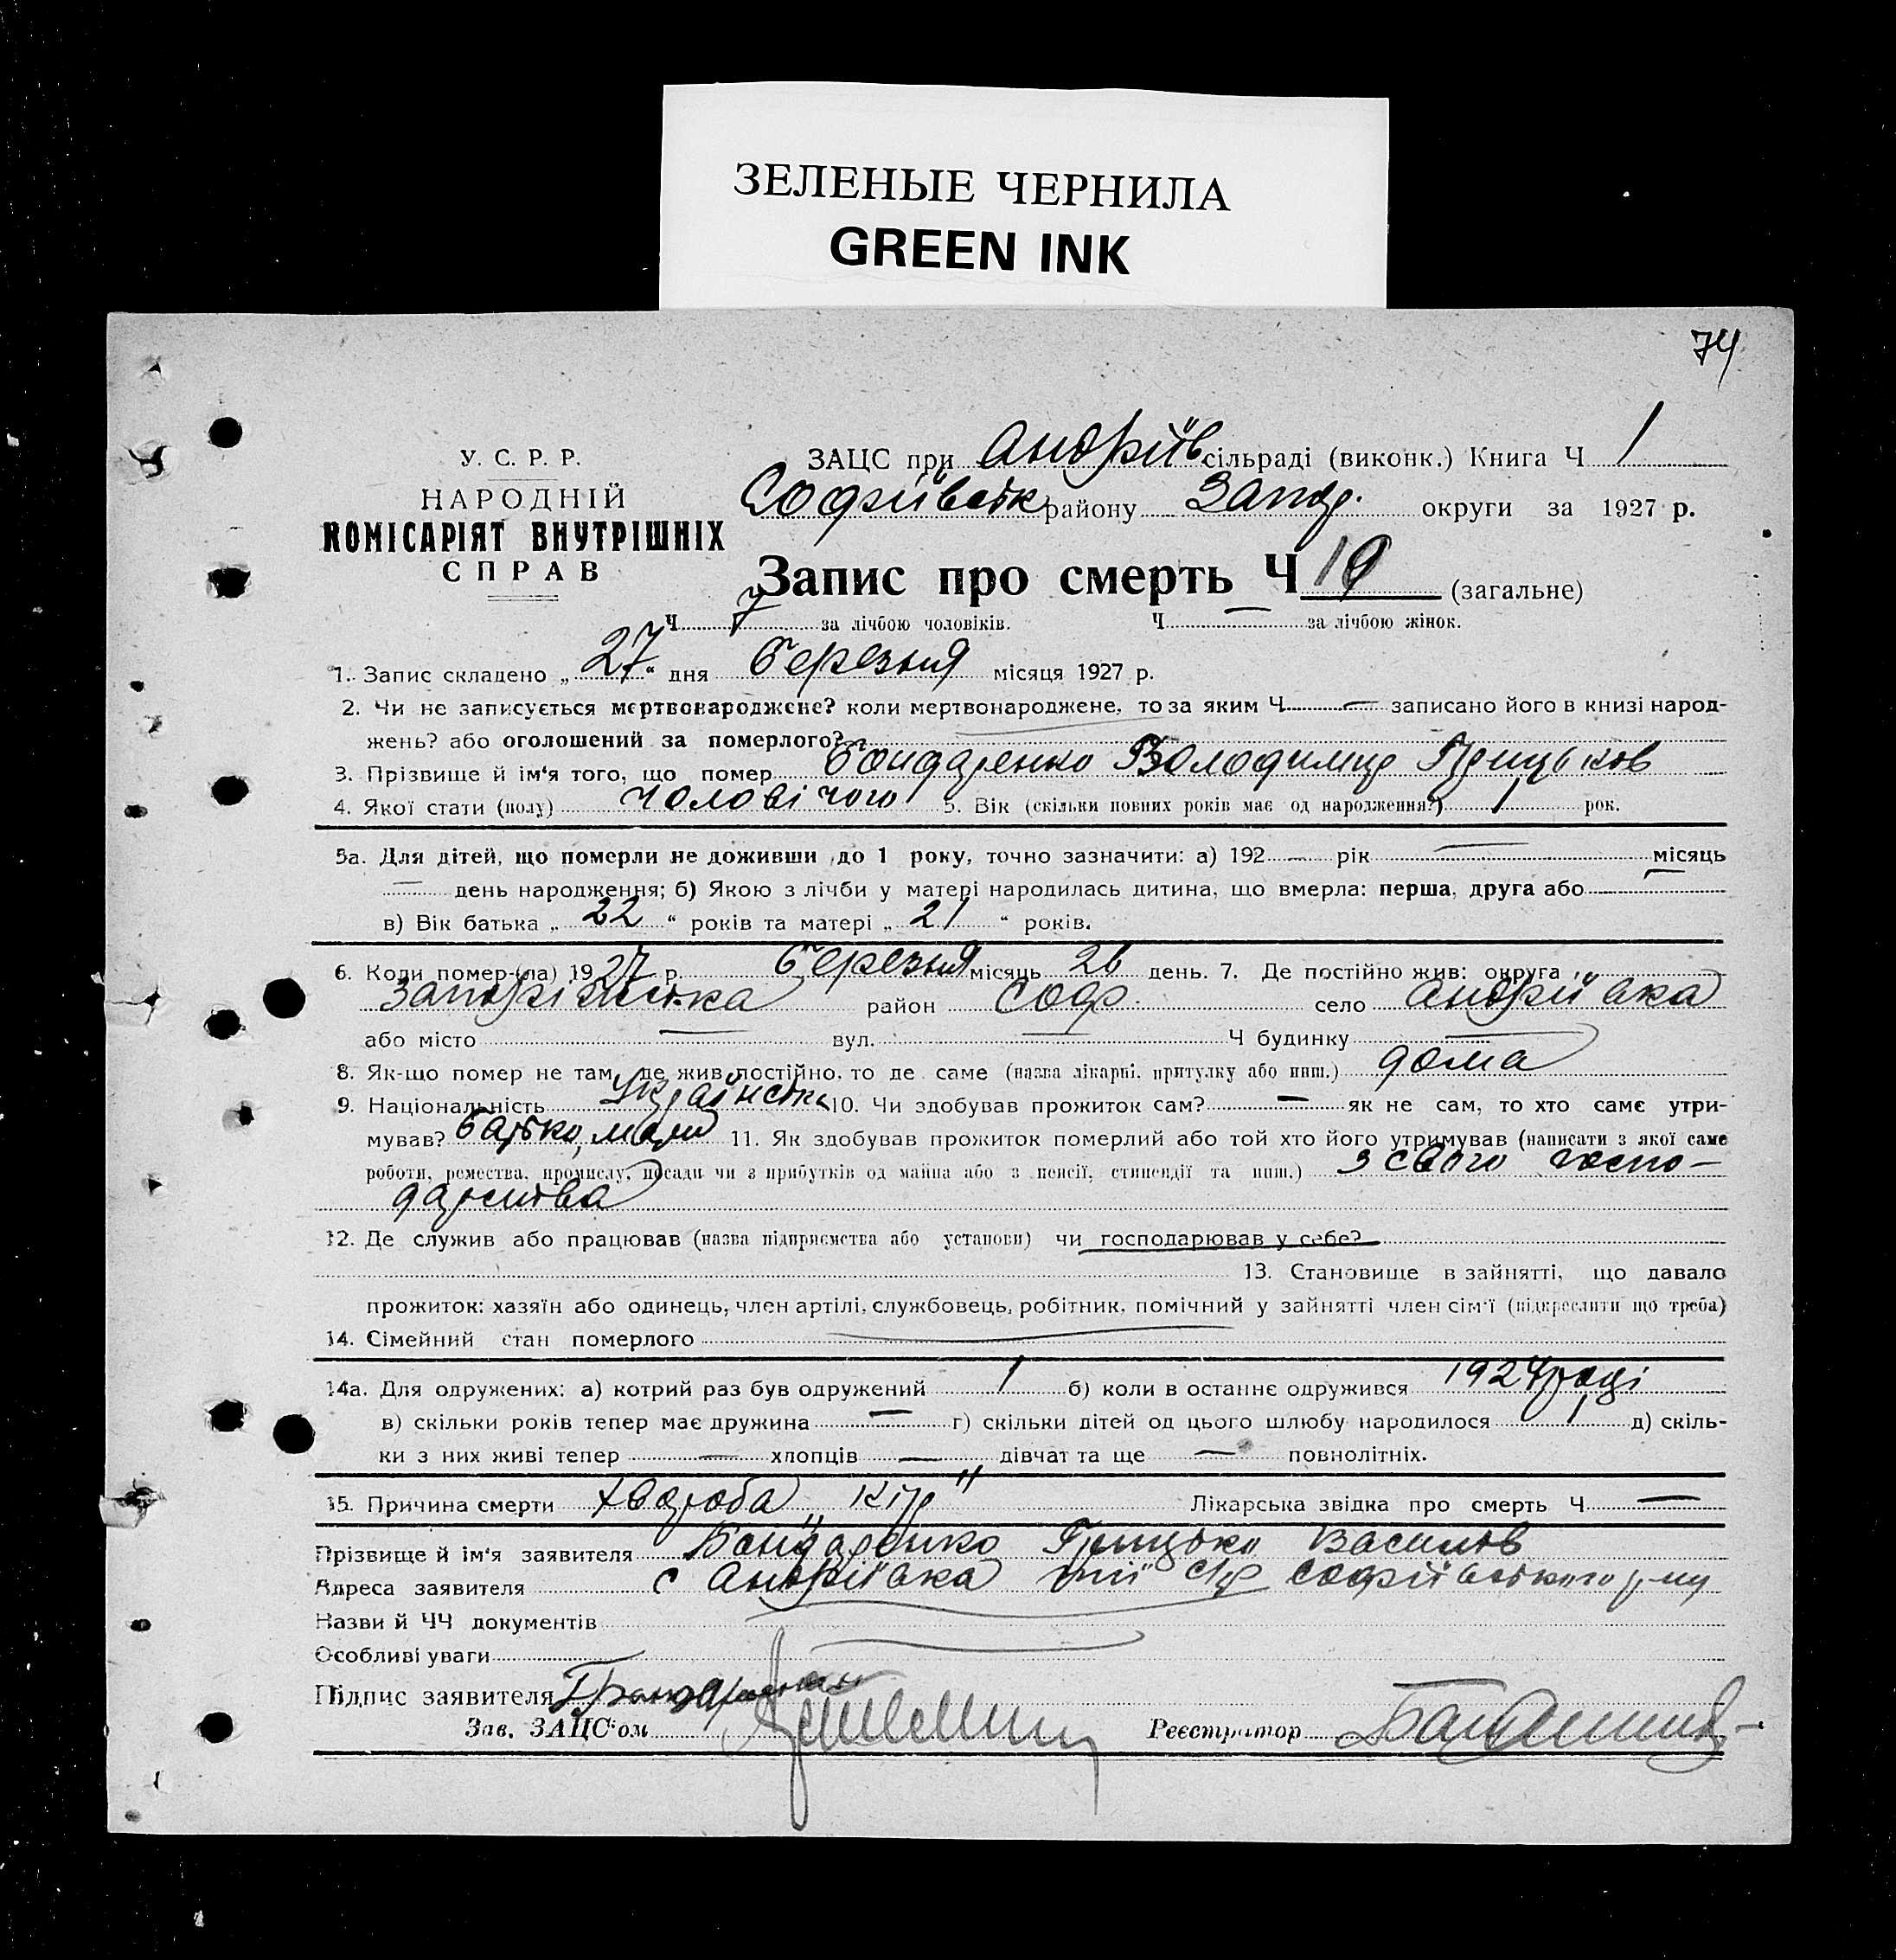 ЗЕЛЕНЫЕ ЧЕРНИЛА
GREEN INK
74
У. С. Р. Р.
НАРОДНІЙ
КОМІСАРІЯТ ВНУТРІШНІХ
СПРАВ
ЗАЦС при Андріїв сільраді (виконк.) Книга Ч 1
Софіївськ району Запор. округи за 1927 р.
Запис про смерть Ч 19 (загальне)
Ч 7 за лічбою чоловіків. Ч — за лічбою жінок.
1. Запис складено „ 27 “ дня березня місяця 1927 р.
2. Чи не записується мертвонароджене? коли мертвонароджене, то за яким Ч — записано його в книзі народ-
жень? або оголошений за померлого?
3. Прізвище й ім'я того, що помер Бондаренко Володимир Грицьков
4. Якої стати (полу) чоловічого 5. Вік (скільки повних років має од народження?) 1 рок.
5а. Для дітей, що померли не доживши до 1 року, точно зазначити: а) 192 — рік — місяць
— день народження; б) Якою з лічби у матері народилась дитина, що вмерла: перша, друга або —
в) Вік батька „ 22 “ років та матері „ 21 “ років.
6. Коли помер-(ла) 1927 р. березня місяць 26 день. 7. Де постійно жив: округа
Запорізька район Соф. село Андріївка
або місто — вул. — Ч будинку —
8. Як-що помер не там, де жив постійно, то де саме (назва лікарні, притулку або инш.) дома
9. Національність 10. Чи здобував прожиток сам? — як не сам, то хто саме утри-
мував? батько, мати 11. Як здобував прожиток померлий або той хто його утримував (написати з якої саме
роботи, ремества, промислу, посади чи з прибутків од майна або з пенсії, стипендії та инш.) з свого госпо-
дарства
12. Де служив або працював (назва підприємства або установи) чи господарював у себе?
13. Становище в зайнятті, що давало
прожиток: хазяїн або одинець, член артілі, службовець, робітник, помічний у зайнятті член сім'ї (підкреслити що треба)
14. Сімейний стан померлого —
14а. Для одружених: а) котрий раз був одружений 1 б) коли в останнє одружився 1924 році
в) скільки років тепер має дружина — г) скільки дітей од цього шлюбу народилося 1 д) скіль-
ки з них живі тепер — хлопців — дівчат та ще — повнолітніх.
15. Причина смерти хвороба „кір“ Лікарська звідка про смерть Ч —
Прізвище й ім'я заявителя Бондаренко Грицько Васильов
Адреса заявителя с Андріївка тії с/р Софіївського р-ну
Назви й ЧЧ документів
Особливі уваги
Підпис заявителя Г Бондаренко
Зав. ЗАЦС'ом
Реєстратор